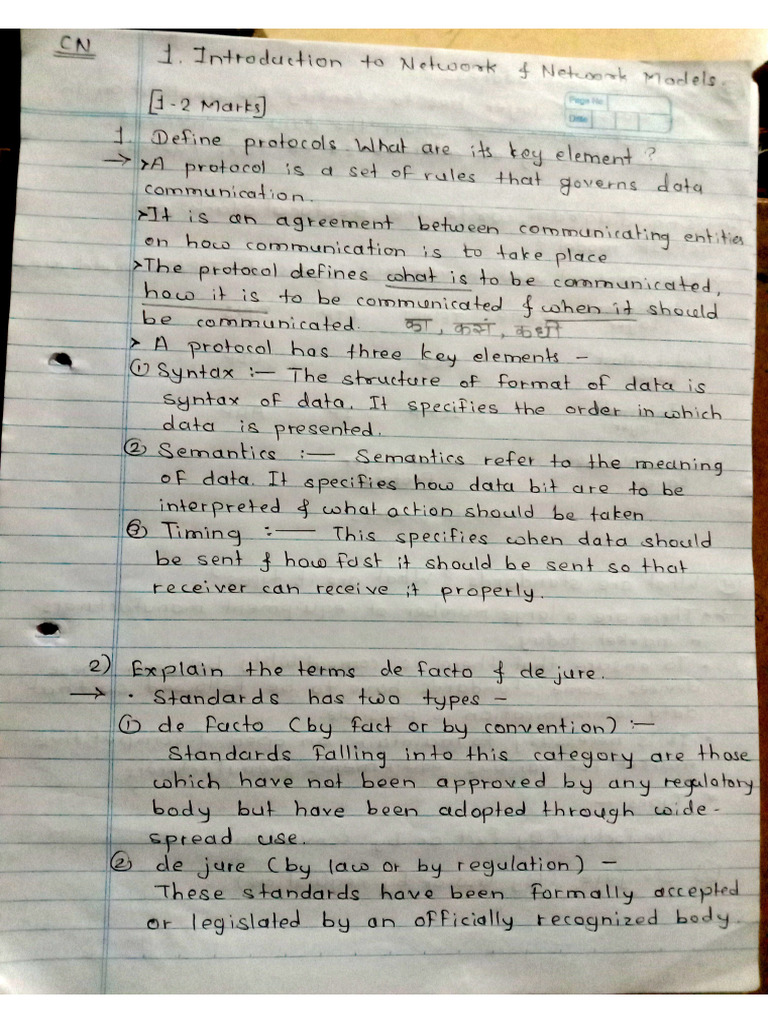 CN
1. Introduction to Network & Network Models.
[1-2 Marks]
Page No
Date
1. Define protocols What are its key element ?
→ > A protocol is a set of rules that governs data
communication.
> It is an agreement between communicating entities
on how communication is to take place
> The protocol defines what is to be communicated,
how it is to be communicated & when it should
be communicated. का, कसं, कधी
> A protocol has three key elements -
① Syntax :- The structure of format of data is
syntax of data. It specifies the order in which
data is presented.
② Semantics :- Semantics refer to the meaning
of data. It specifies how data bit are to be
interpreted & what action should be taken
③ Timing :- This specifies when data should
be sent & how fast it should be sent so that
receiver can receive it properly.
2) Explain the terms de facto & de jure.
→ • Standards has two types -
① de facto (by fact or by convention) :-
Standards falling into this category are those
which have not been approved by any regulatory
body but have been adopted through wide-
spread use.
② de jure (by law or by regulation) -
These standards have been formally accepted
or legislated by an officially recognized body.